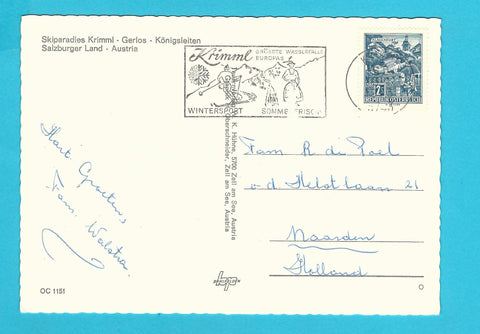 Skiparadies Krimml - Gerlos - Königsleiten
Salzburger Land - Austria
Krimml GRÖSSTE WASSERFÄLLE
EUROPAS
WINTERSPORT SOMMERFRISCHE
REPUBLIK ÖSTERREICH
K. Hühne, 5700 Zell am See, Austria
Oberschneider, Zell am See, Austria
Hart. Groetens
Fam. Walstra
Fam R de Poel
v.d Helstlaan 21
Naarden
Holland
OC 1151
O